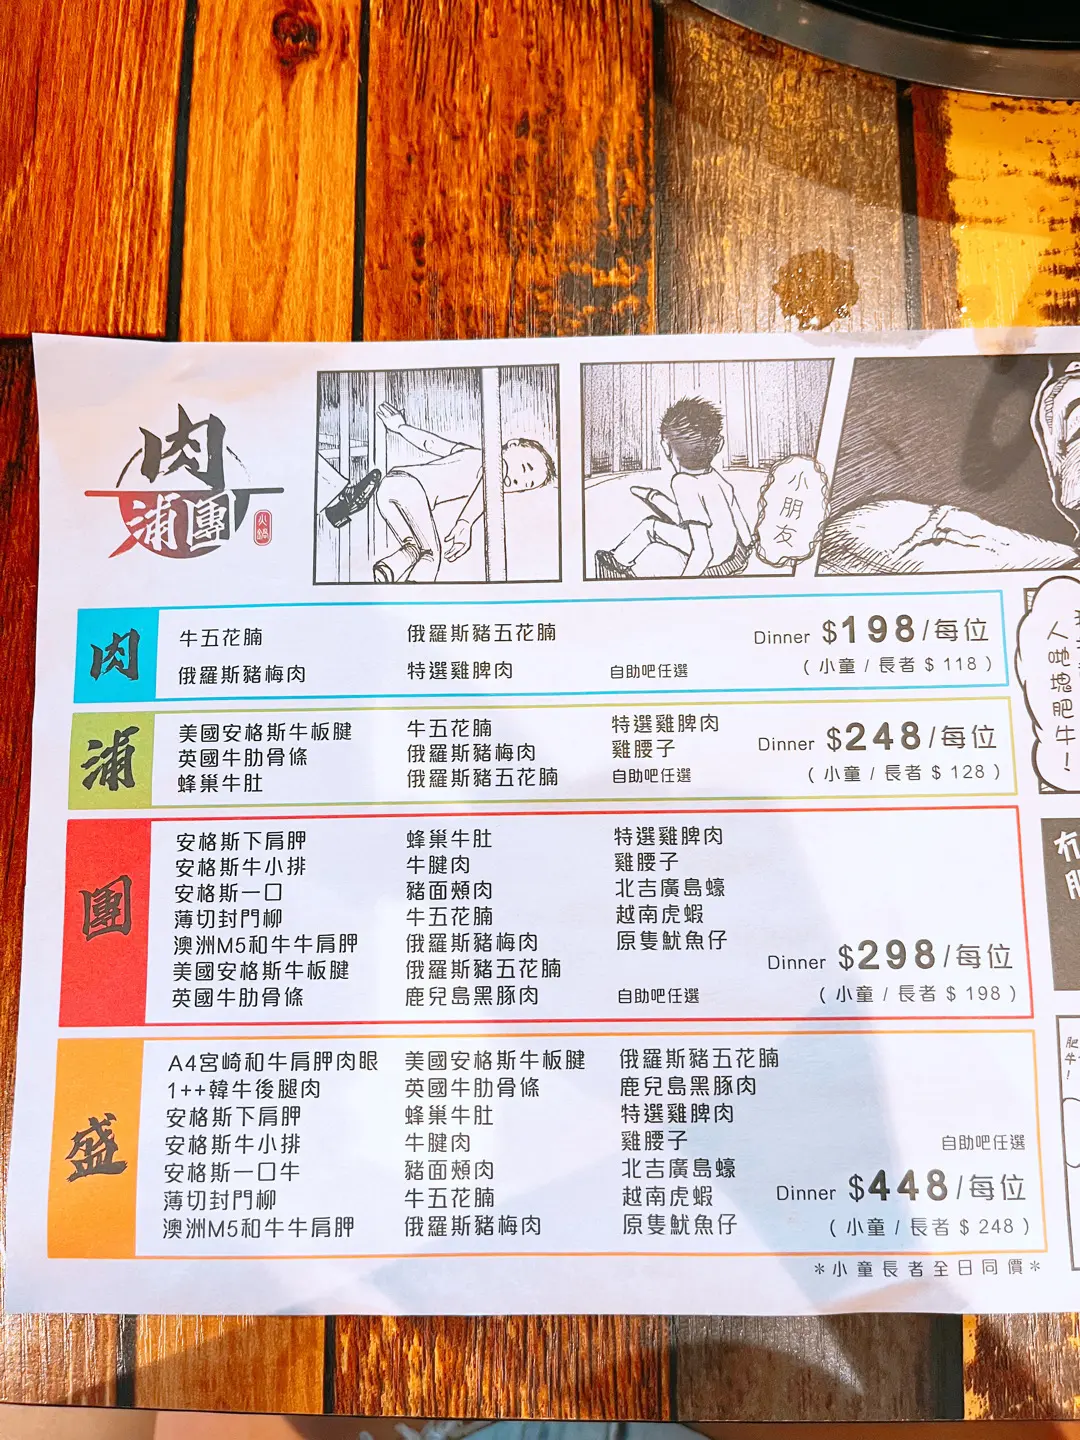 肉
浦團
火鍋
小朋友
人哋塊肥牛！
肉
牛五花腩
俄羅斯豬五花腩
Dinner $198/每位
俄羅斯豬梅肉
特選雞脾肉
自助吧任選
( 小童 / 長者 $ 118 )
浦
美國安格斯牛板腱
牛五花腩
特選雞脾肉
英國牛肋骨條
俄羅斯豬梅肉
雞腰子
Dinner $248/每位
蜂巢牛肚
俄羅斯豬五花腩
自助吧任選
( 小童 / 長者 $ 128 )
團
安格斯下肩胛
蜂巢牛肚
特選雞脾肉
安格斯牛小排
牛腱肉
雞腰子
安格斯一口
豬面頰肉
北吉廣島蠔
薄切封門柳
牛五花腩
越南虎蝦
澳洲M5和牛牛肩胛
俄羅斯豬梅肉
原隻魷魚仔
美國安格斯牛板腱
俄羅斯豬五花腩
Dinner $298/每位
英國牛肋骨條
鹿兒島黑豚肉
自助吧任選
( 小童 / 長者 $ 198 )
盛
A4宮崎和牛肩胛肉眼
美國安格斯牛板腱
俄羅斯豬五花腩
1++韓牛後腿肉
英國牛肋骨條
鹿兒島黑豚肉
安格斯下肩胛
蜂巢牛肚
特選雞脾肉
安格斯牛小排
牛腱肉
雞腰子
自助吧任選
安格斯一口牛
豬面頰肉
北吉廣島蠔
薄切封門柳
牛五花腩
越南虎蝦
Dinner $448/每位
澳洲M5和牛牛肩胛
俄羅斯豬梅肉
原隻魷魚仔
( 小童 / 長者 $ 248 )
*小童長者全日同價*